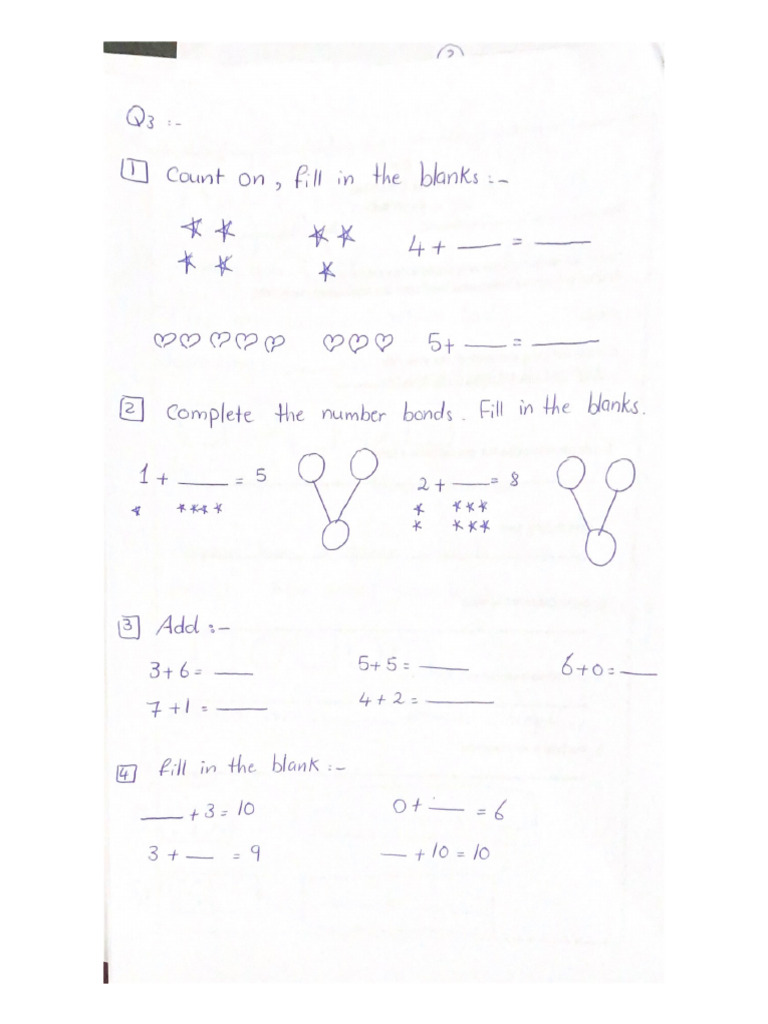 2
Q3 :-
1 Count on, fill in the blanks :-
4 + ___ = ___
5+ ___ = ___
2 Complete the number bonds. Fill in the blanks.
1 + ___ = 5 2 + ___ = 8
3 Add :-
3+6= ___ 5+5= ___ 6+0= ___
7+1= ___ 4+2= ___
4 fill in the blank :-
___ +3=10 0+ ___ =6
3 + ___ = 9 ___ +10=10